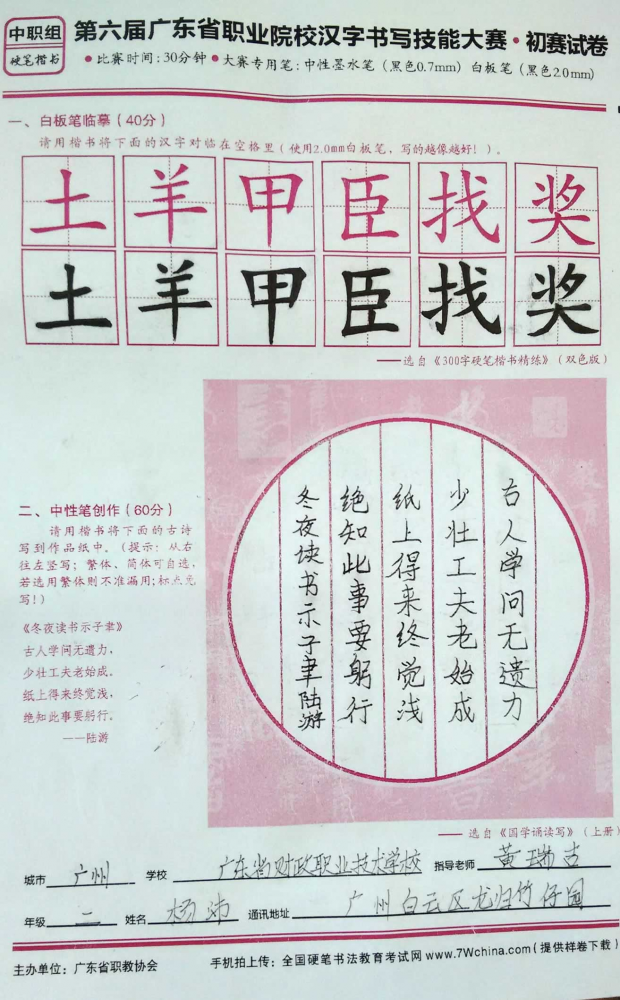 中职组
硬笔楷书
第六届广东省职业院校汉字书写技能大赛·初赛试卷
●比赛时间:30分钟●大赛专用笔:中性墨水笔(黑色0.7mm) 白板笔(黑色2.0mm)
一、白板笔临摹(40分)
请用楷书将下面的汉字对临在空格里(使用2.0mm白板笔,写的越像越好!)。
土羊甲臣找奖
土羊甲臣找奖
——选自《300字硬笔楷书精练》(双色版)
二、中性笔创作(60分)
请用楷书将下面的古诗
写到作品纸中。(提示:从右
往左竖写;繁体、简体可自选,
若选用繁体则不准漏用;标点免
写!)
《冬夜读书示子聿》
古人学问无遗力,
少壮工夫老始成。
纸上得来终觉浅,
绝知此事要躬行。
——陆游
古人学问无遗力
少壮工夫老始成
纸上得来终觉浅
绝知此事要躬行
冬夜读书示子聿陆游
——选自《国学诵读写》(上册)
城市 广州 学校 广东省财政职业技术学校 指导老师 黄瑞吉
年级 二 姓名 杨沛 通讯地址 广州白云区龙归竹仔园
主办单位:广东省职教协会 手机拍上传:全国硬笔书法教育考试网 www.7Wchina.com(提供样卷下载)